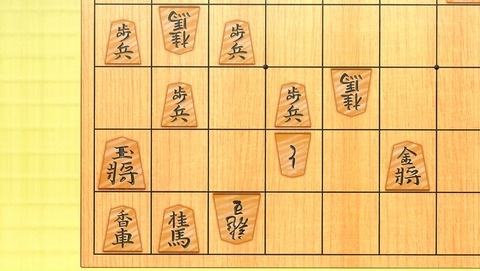 歩兵 桂馬 歩兵
歩兵 歩兵 桂馬
玉將 と 金將
香車 桂馬 龍王